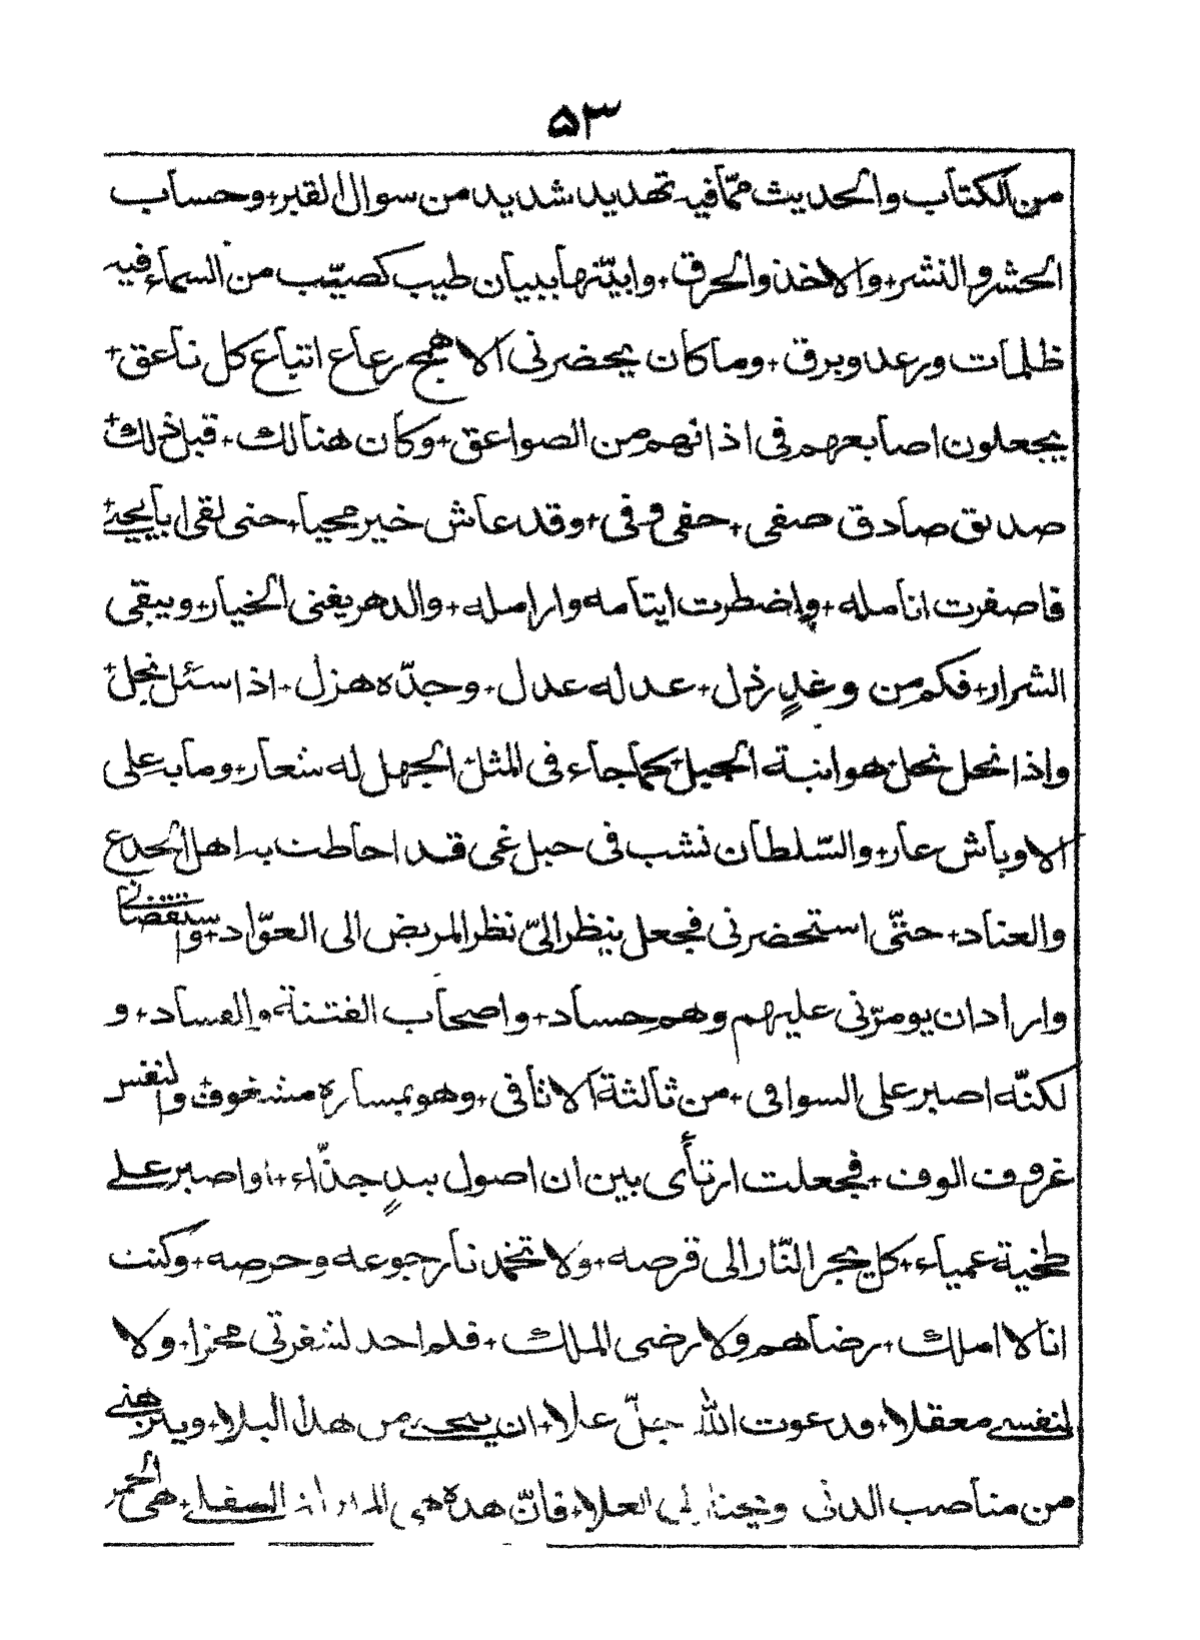 ۵۳
من الكتاب والحديث ممّا فيه تهديد شديد من سوال القبر+وحساب
الحشر والنشر+والاخذ والحرق+وابيّنها ببيان طيب كصيّب من السماء فيه
ظلمات ورعد وبرق+وما كان يحضرنى الا همج رعاع اتباع كل ناعق+
يجعلون اصابعهم فى اذانهم من الصواعق+وكان هنالك+قبل ذلك+
صديق صادق صفى+حفى وفى+وقد عاش خير محيا+حتى لقى
فاصفرت انامله+واضطرت ايتامه وارامله+والدهر يفنى الخيار+ويبقى
الشرار+فكم من وغدٍ رذل+عدله عدل+وجدّه هزل+اذا سئل نجل+
واذا نحل نحل+هو ابنة الجبل+كما جاء فى المثل+الجهل له شعار+وما به على
الاوباش عار+والسّلطان نشب فى حبل غمى قد احاطت به اهل الجدع
والعناد+حتّى استحضرنى فجعل ينظر الىّ نظر المريض الى العوّاد+واستقضانى
واراد ان يومرّنى عليهم وهم حساد+واصحاب الفتنة والفساد+و
لكنّه اصبر على السوافى+من ثالثة الاثافى+وهو بمساره مشغوف+ولنفس
غروف الوف+فجعلت ارتأى بين ان اصول بيدٍ جذّاء+او اصبر على
طخية عمياء+كل يجر النّار الى قرصه+ولا تخمد نار جوعه وحرصه+وكنت
انا لا املك+رضاهم ولا رضى الملك+فلم احد لشفرتى محزا+ولا
لنفسى معقلا+ودعوت الله جلّ علا+ان ينجى من هذا البلا+وينزهنى
من مناصب الدنى العلا+فانّ هذه هى السفلى+هى الحمر